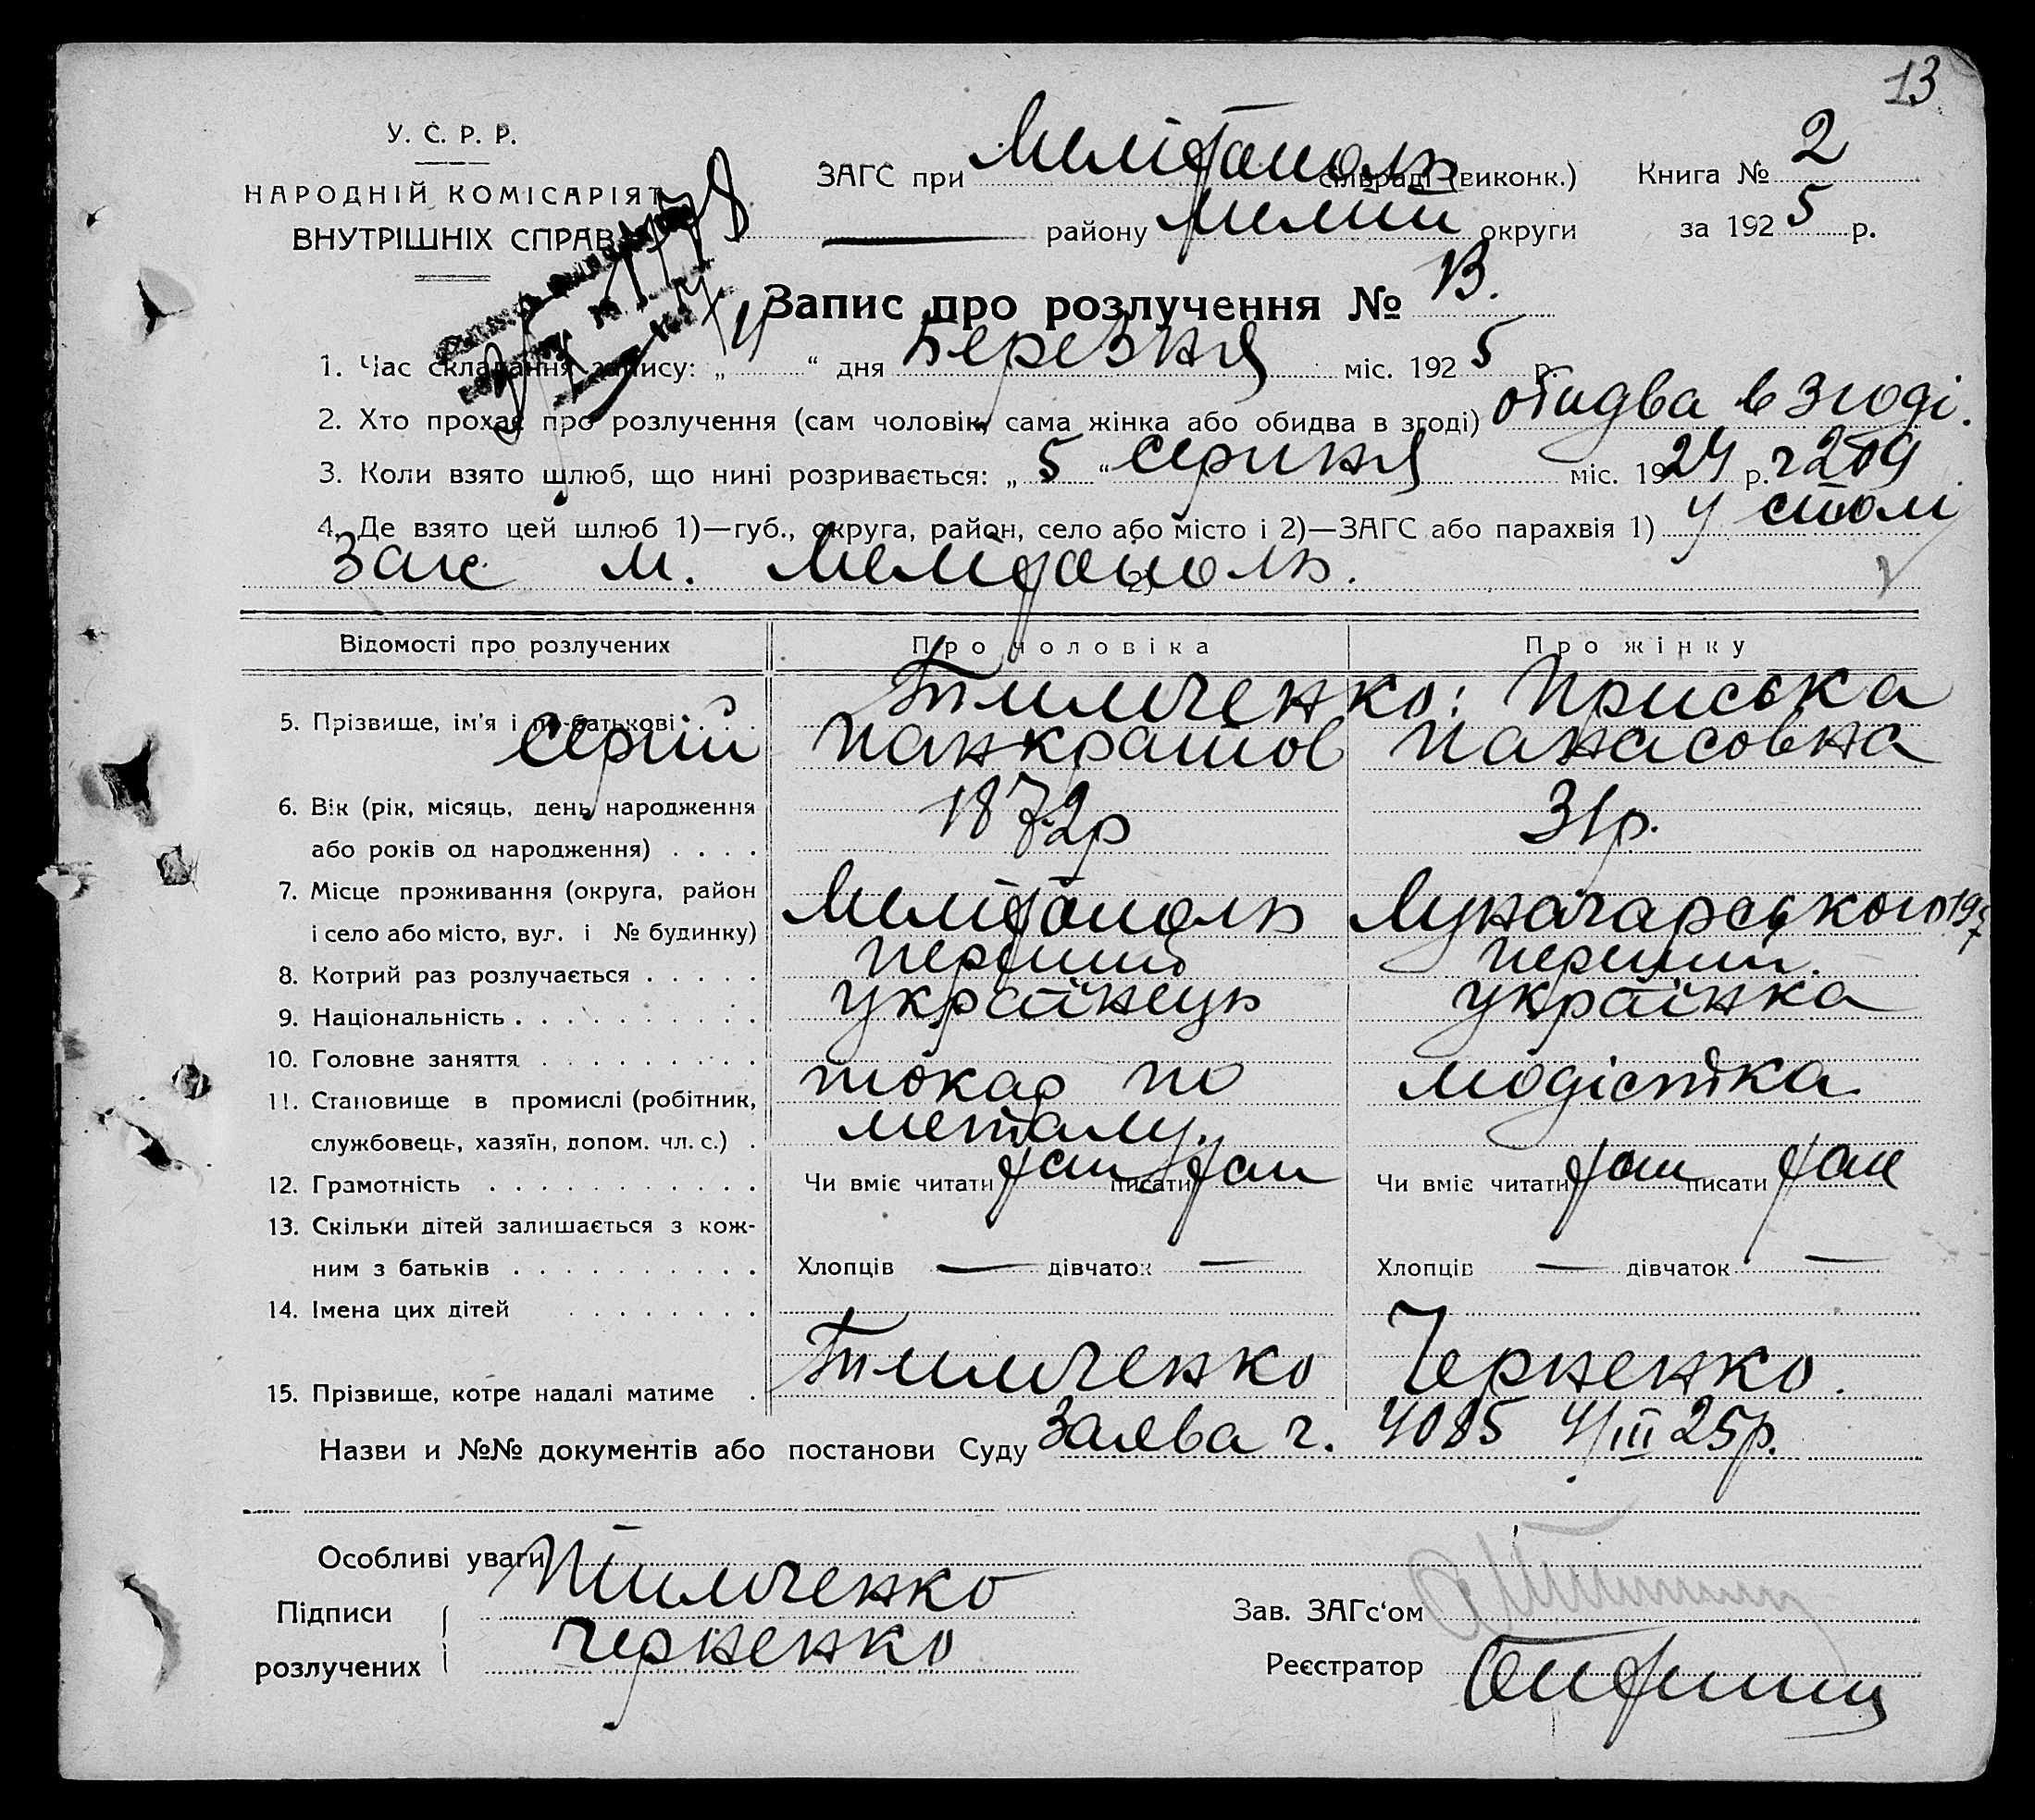 13
У. С. Р. Р.
НАРОДНІЙ КОМІСАРІЯТ
ВНУТРІШНІХ СПРАВ
ЗАГС при Мелітополь сільраді (виконк.) Книга № 2
району Мелит округи за 1925 р.
Запис про розлучення № 13.
1. Час складання запису: „4“ дня Березня міс. 1925 р.
2. Хто прохає про розлучення (сам чоловік, сама жінка або обидва в згоді) обидва в згоді.
3. Коли взято шлюб, що нині розривається: „5“ серпня міс. 1924 р. ч 209
4. Де взято цей шлюб 1)—губ., округа, район, село або місто і 2)—ЗАГС або парахвія 1) у столі
Загс м. Мелітополь. 2)
Відомості про розлучених Про чоловіка Про жінку
5. Прізвище, ім'я і по-батькові . . . Тимченко: Приська
Сергій Панкратов Панасовна
6. Вік (рік, місяць, день народження 1872р 31р.
або років од народження) . . . .
7. Місце проживання (округа, район
і село або місто, вул. і № будинку) Мелітополь Луначарського 197
8. Котрий раз розлучається . . . . . перший перший.
9. Національність . . . . . . . . . . українець українка
10. Головне заняття . . . . . . . . .
11. Становище в промислі (робітник, токар по модістка
службовець, хазяїн, допом. чл. с.) . металу.
12. Грамотність . . . . . . . . . . . Чи вміє читати так писати так Чи вміє читати так писати так
13. Скільки дітей залишається з кож-
ним з батьків . . . . . . . . . . Хлопців — дівчаток — Хлопців — дівчаток —
14. Імена цих дітей . . . . . . . .
15. Прізвище, котре надалі матиме . Тимченко Черненко.
Назви и №№ документів або постанови Суду Заява ч. 4085 4/III 25р.
Особливі уваги
Підписи Тимченко Зав. ЗАГс‘ом
розлучених Черненко Реєстратор